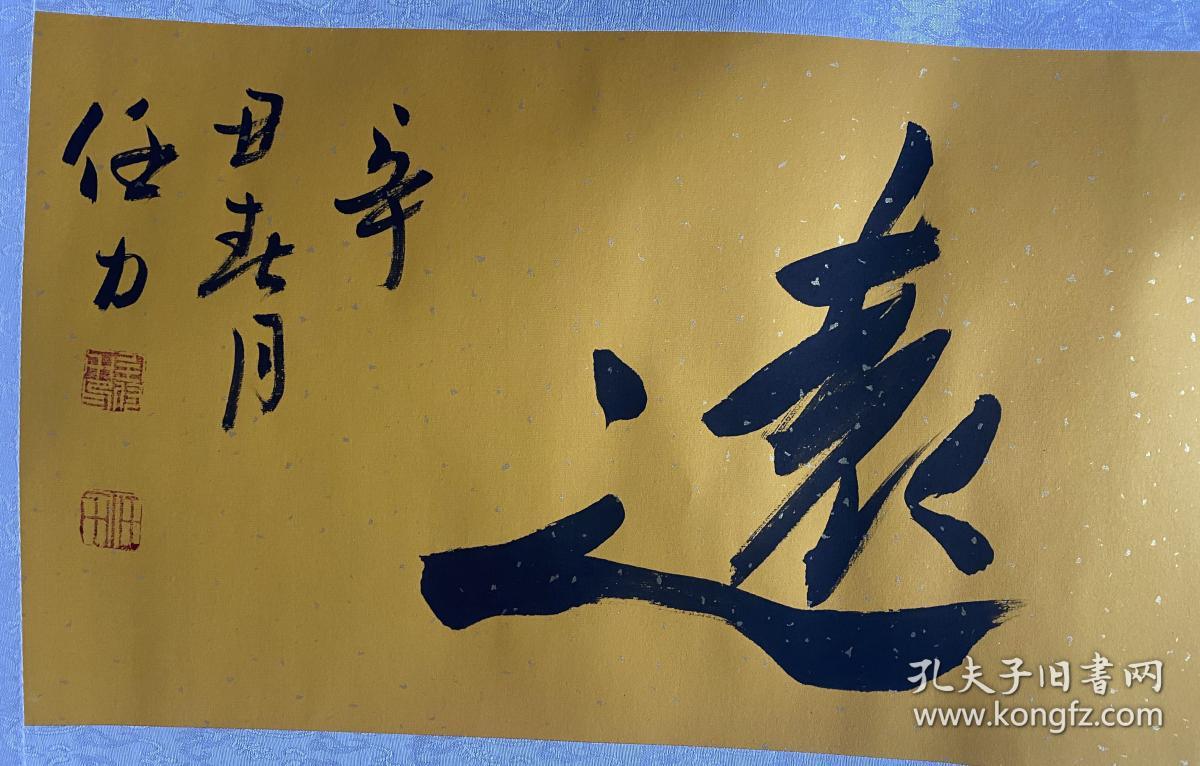 遠
辛
丑春月
任力
孔夫子旧書网
www.kongfz.com